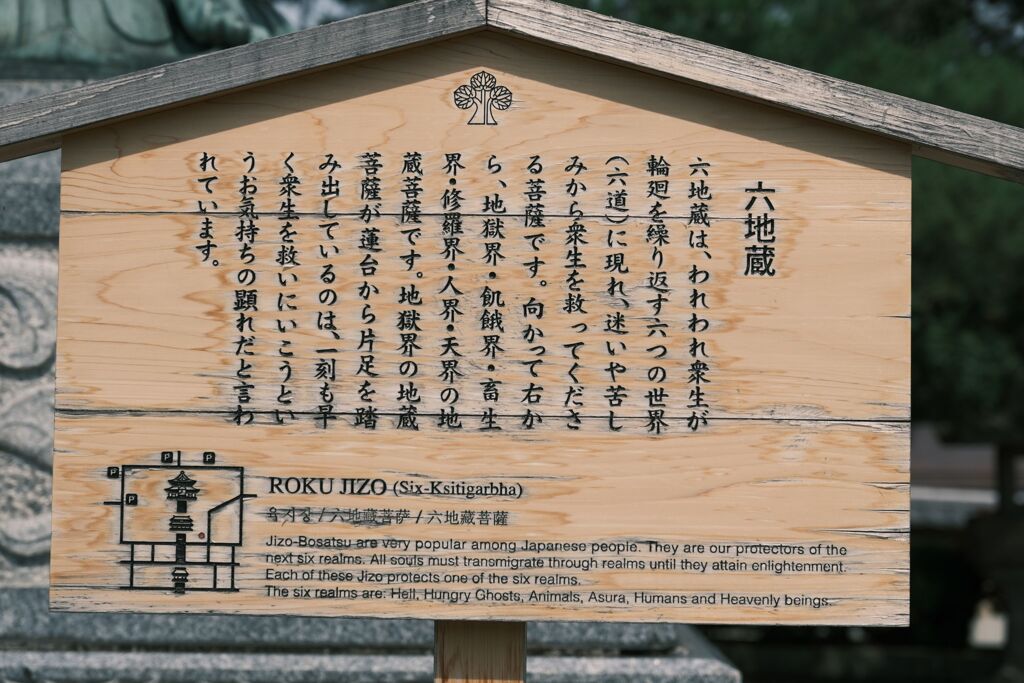 六地蔵
六地蔵は、われわれ衆生が
輪廻を繰り返す六つの世界
(六道)に現れ、迷いや苦し
みから衆生を救ってくださ
る菩薩です。向かって右か
ら、地獄界・飢餓界・畜生
界・修羅界・人界・天界の地
蔵菩薩です。地獄界の地蔵
菩薩が蓮台から片足を踏
み出しているのは、一刻も早
く衆生を救いにいこうとい
うお気持ちの顕れだと言わ
れています。
P
P
P
P
ROKU JIZO (Six-Ksitigarbha)
육지장 / 六地藏菩萨 / 六地藏菩薩
Jizo-Bosatsu are very popular among Japanese people. They are our protectors of the
next six realms. All souls must transmigrate through realms until they attain enlightenment.
Each of these Jizo protects one of the six realms.
The six realms are: Hell, Hungry Ghosts, Animals, Asura, Humans and Heavenly beings.